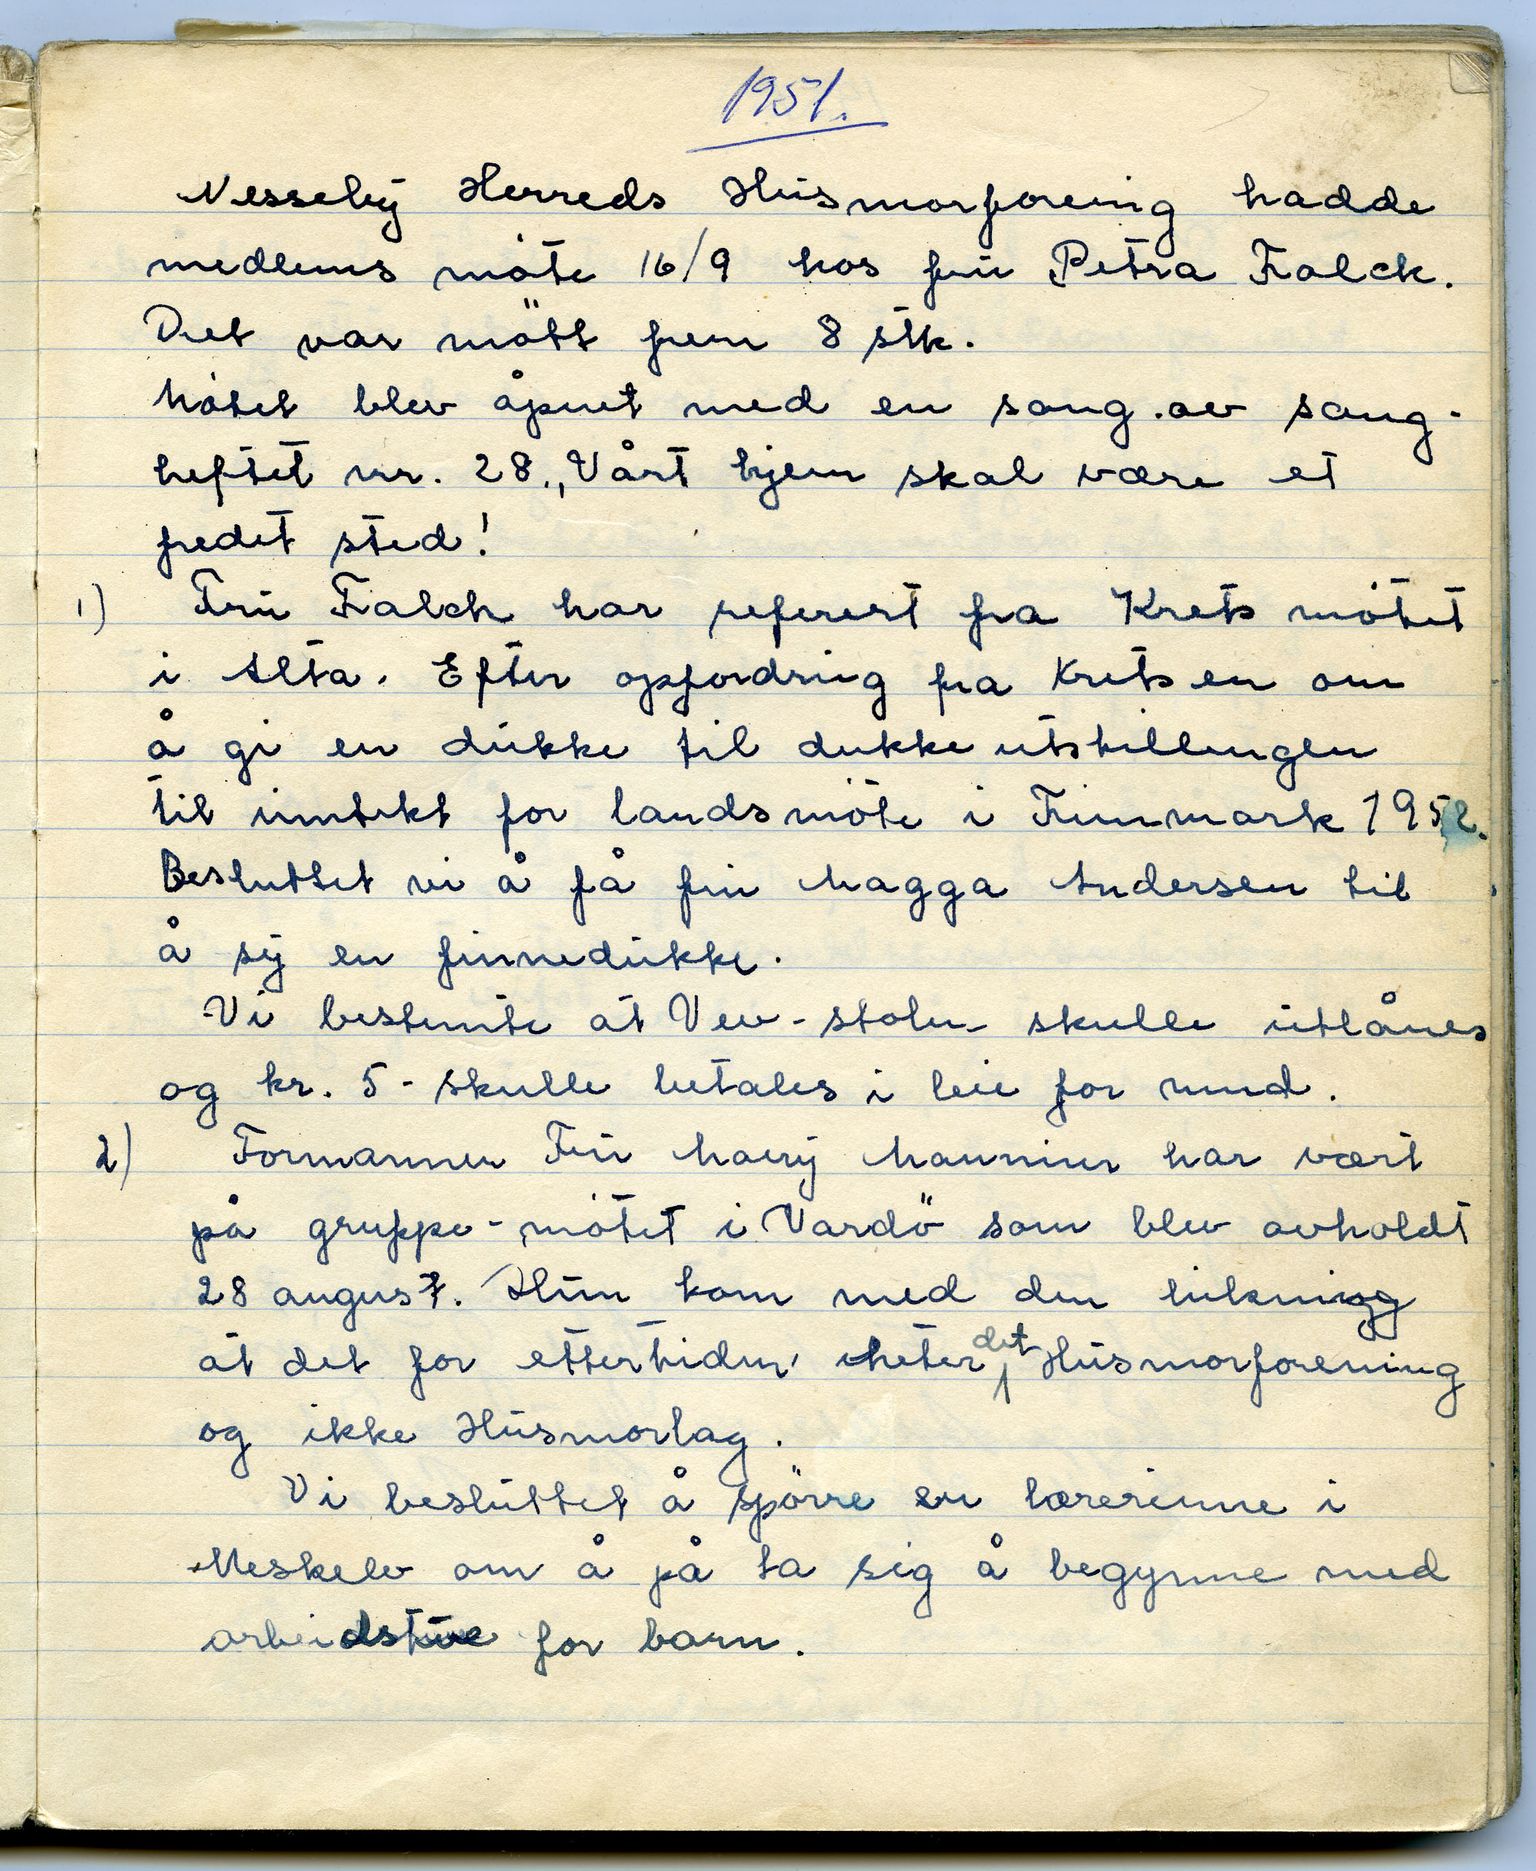 1951.
Nesseby Herreds Husmorforening hadde
medlems möte 16/9 hos fru Petra Falck.
Det var mött frem 8 stk.
Mötet blev åpnet med en sang .av sang-
heftet nr. 28. „Vårt hjem skal være et
fredet sted!
1) Fru Falch har referert fra Krets mötet
i Alta. Efter opfordring fra Kretsen om
å gi en dukke til dukke utstillingen
til inntekt for landsmöte i Finnmark 1952.
Besluttet vi å få fru Magga Andersen til
å sy en finnedukke.
Vi bestemte at Vev-stolen skulle utlånes
og kr. 5- skulle betales i leie for mnd.
2) Formannen Fru Mary Mannines har vært
på gruppe-mötet i Vardö som blev avholdt
28 august. Hun kom med den
at det for ettertiden heter det Husmorforening
og ikke Husmorlag.
Vi besluttet å spörre en lærerinne i
Meskelv om å på ta sig å begynne med
arbeidstue for barn.